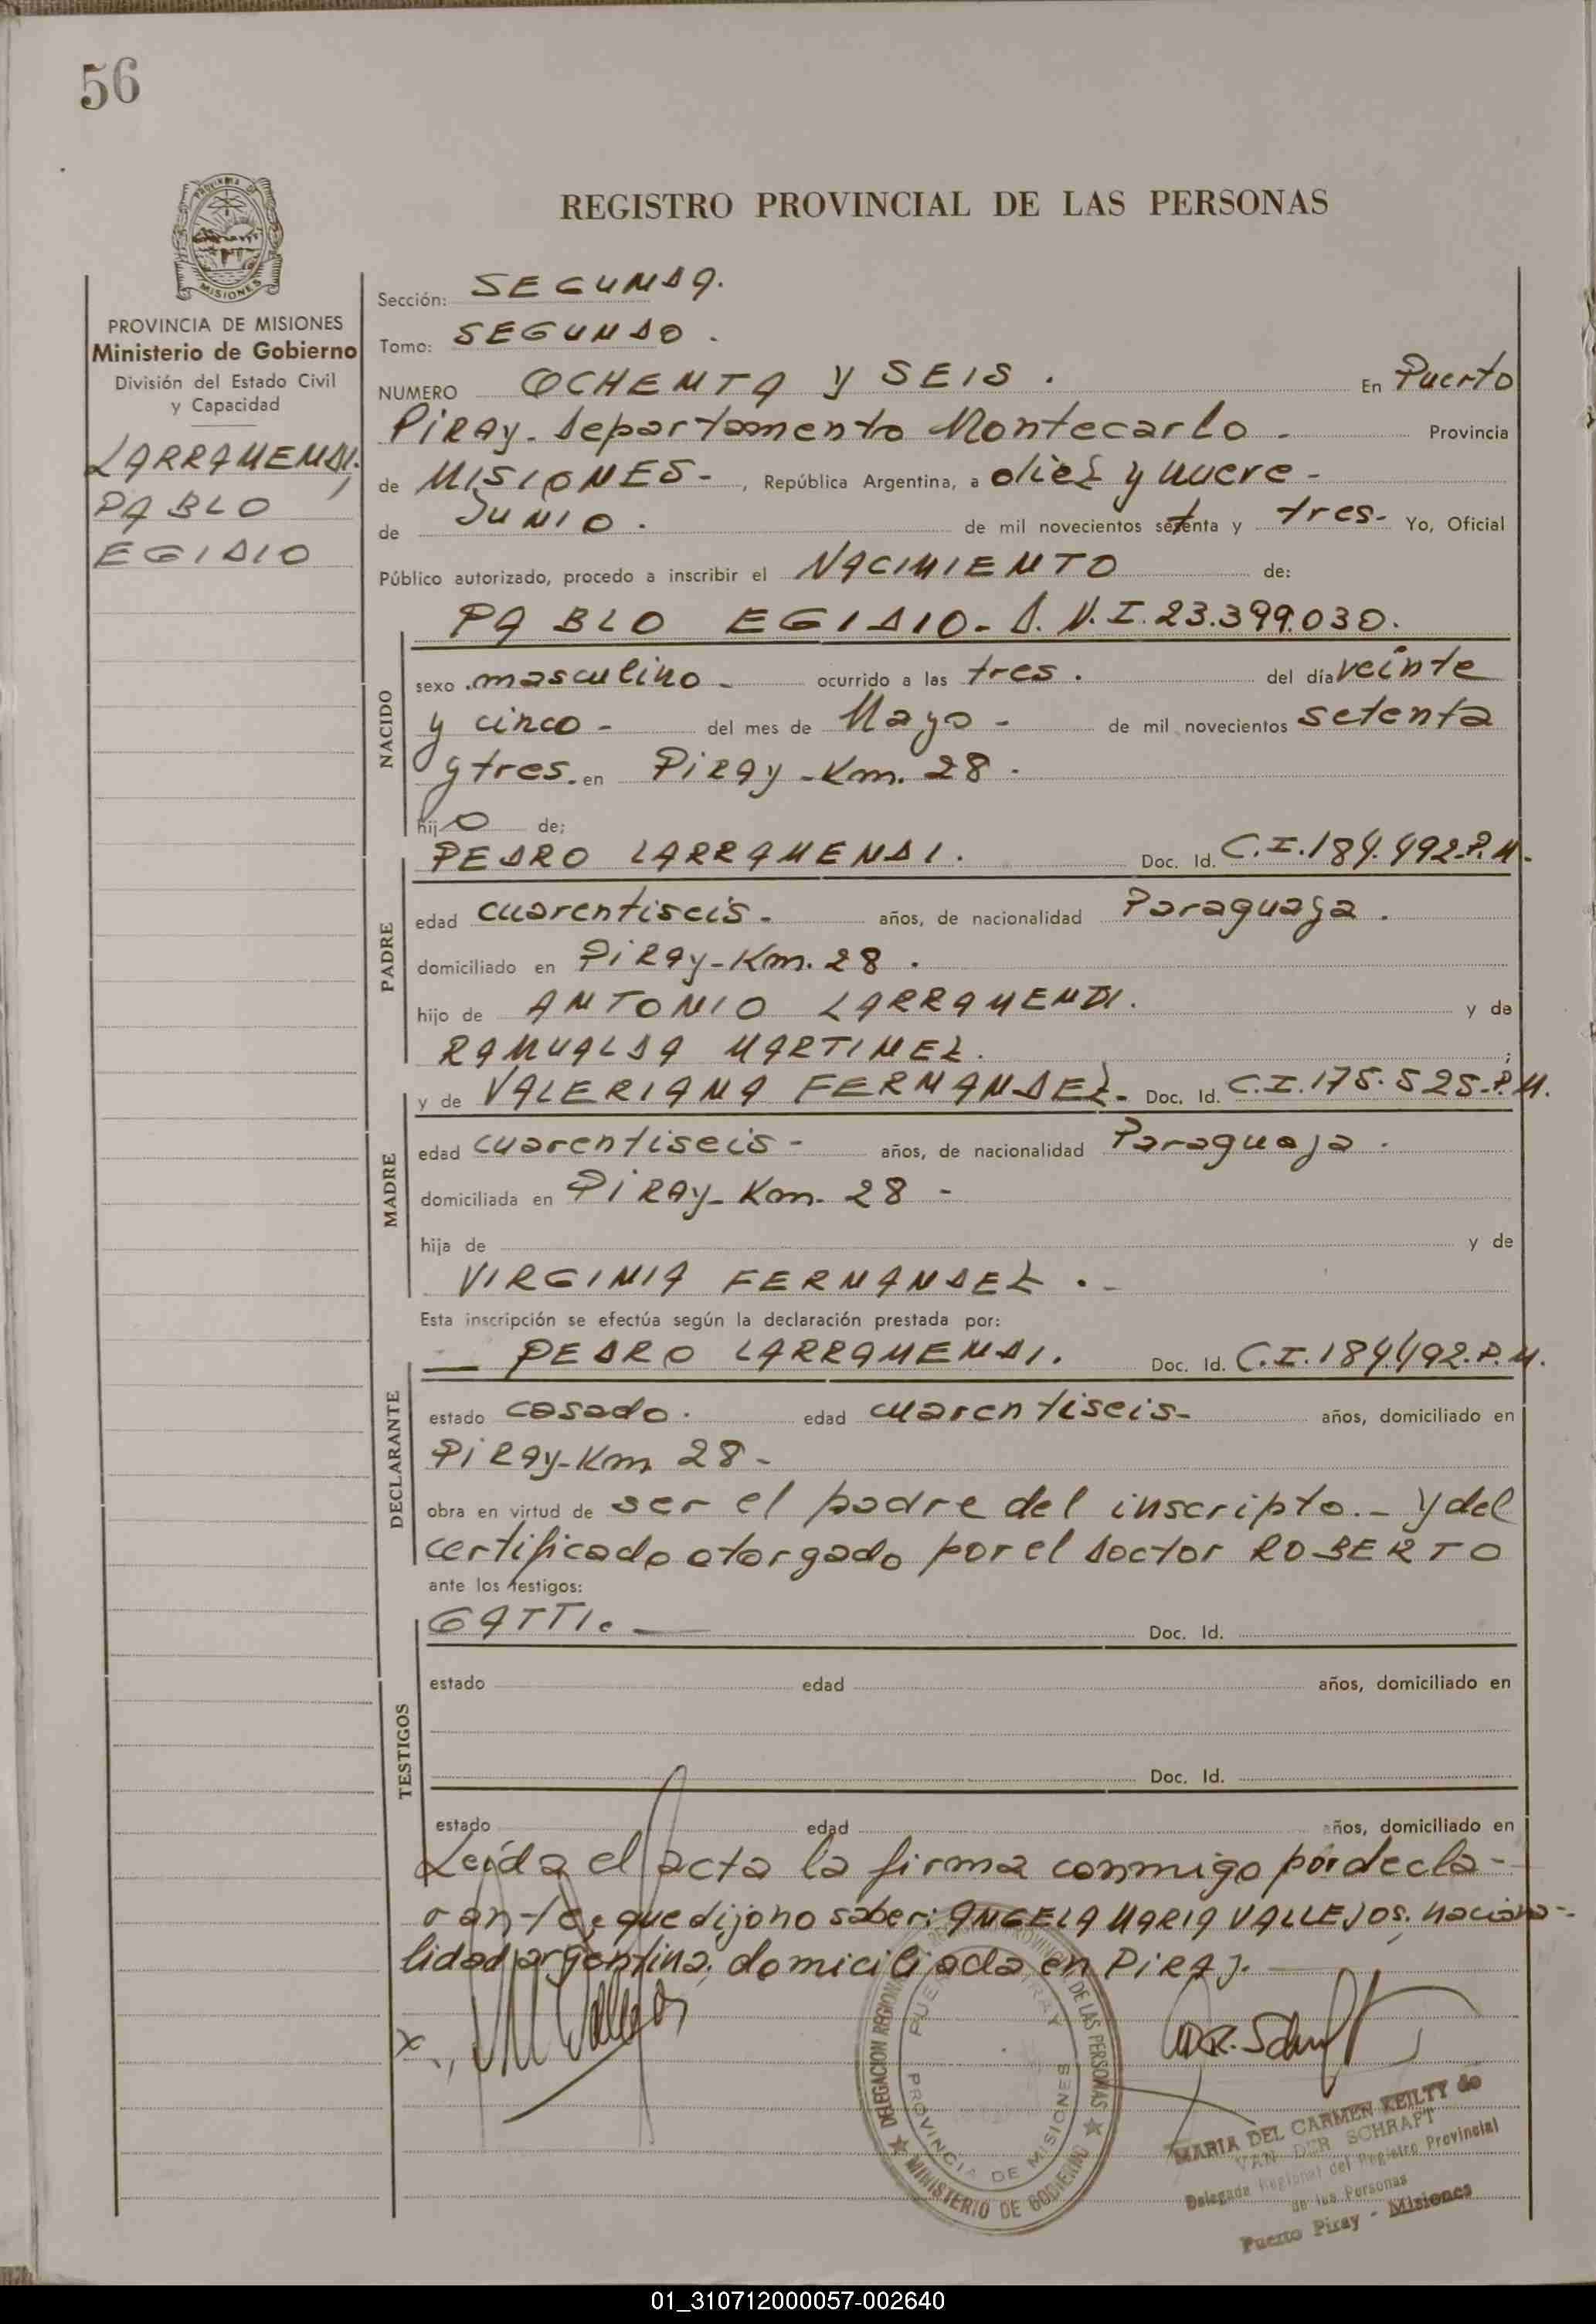 56
PROVINCIA DE MISIONES
REGISTRO PROVINCIAL DE LAS PERSONAS
PROVINCIA DE MISIONES
Ministerio de Gobierno
División del Estado Civil
y Capacidad
LARRAMENDI,
PABLO
EGIDIO
Sección: SEGUNDA.
Tomo: SEGUNDO.
NUMERO OCHENTA y SEIS. En Puerto
Piray. Departamento Montecarlo - Provincia
de MISIONES-, República Argentina, a diez y nueve -
de Junio. de mil novecientos setenta y tres- Yo, Oficial
Público autorizado, procedo a inscribir el NACIMIENTO de:
PABLO EGIDIO- D.N.I. 23.399.030.
NACIDO
sexo masculino - ocurrido a las tres. del día veinte
y cinco - del mes de Mayo - de mil novecientos setenta
y tres. en Piray - Km. 28.
hijo de:
PEDRO LARRAMENDI. Doc. Id. C.I. 184.492-P.M.
PADRE
edad cuarentiseis - años, de nacionalidad Paraguaya.
domiciliado en Piray-Km. 28.
hijo de ANTONIO LARRAMENDI. y de
RAMUALDA MARTINEZ. ;
y de VALERIANA FERNANDEZ- Doc. Id. C.I. 175.525-P.M.
MADRE
edad cuarentiseis - años, de nacionalidad Paraguaya.
domiciliada en Piray-Km- 28 -
hija de y de
VIRGINIA FERNANDEZ. -
Esta inscripción se efectúa según la declaración prestada por:
— PEDRO LARRAMENDI. Doc. Id. C.I. 184.492.P.M.
DECLARANTE
estado casado. edad cuarentiseis- años, domiciliado en
Piray-Km 28-
obra en virtud de ser el padre del inscripto.- y del
certificado otorgado por el Doctor ROBERTO
ante los testigos:
GATTI. — Doc. Id.
TESTIGOS
estado edad años, domiciliado en
Doc. Id.
estado edad años, domiciliado en
Leída el acta la firma conmigo por decla-
rante, que dijo no saber: ANGELA MARIA VALLEJOS, naciona-
lidad argentina, domiciliada en Piray. —
x
DELEGACION REGIONAL REGISTRO PROVINCIAL DE LAS PERSONAS
PUERTO PIRAY
PROVINCIA DE MISIONES
MINISTERIO DE GOBIERNO
MARIA DEL CARMEN KEILTY de
VAN DER SCHRAFT
Delegada Regional del Registro Provincial
de las Personas
Puerto Piray - Misiones
01_310712000057-002640